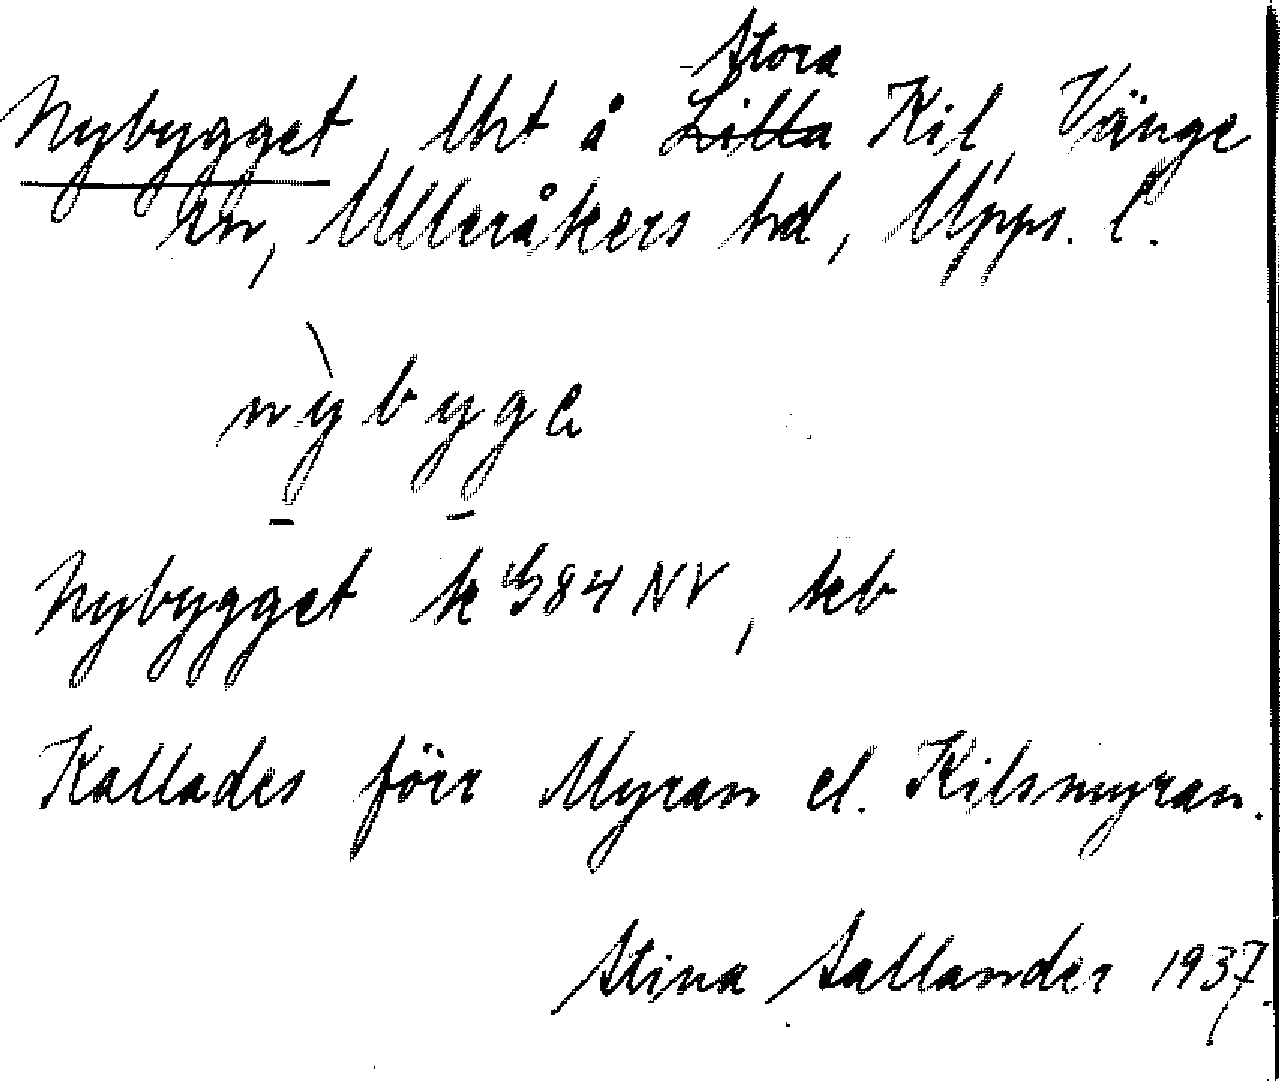 Stora
Nybygget, lht å Lilla Kil, Vänge
sn, Ulleråkers hd, Upps. l.
nỳbyge
Nybygget k 384 NV, kb
Kallades förr Myran el. Kilsmyran.
Stina Sallander 1937.